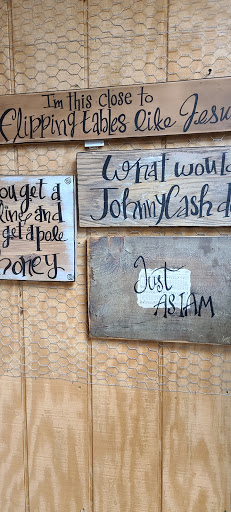 I'm this close to
flipping tables like Jesu
What would
Johnny Cash d
ou get a
line and
get a pole
honey
Just
AS I AM